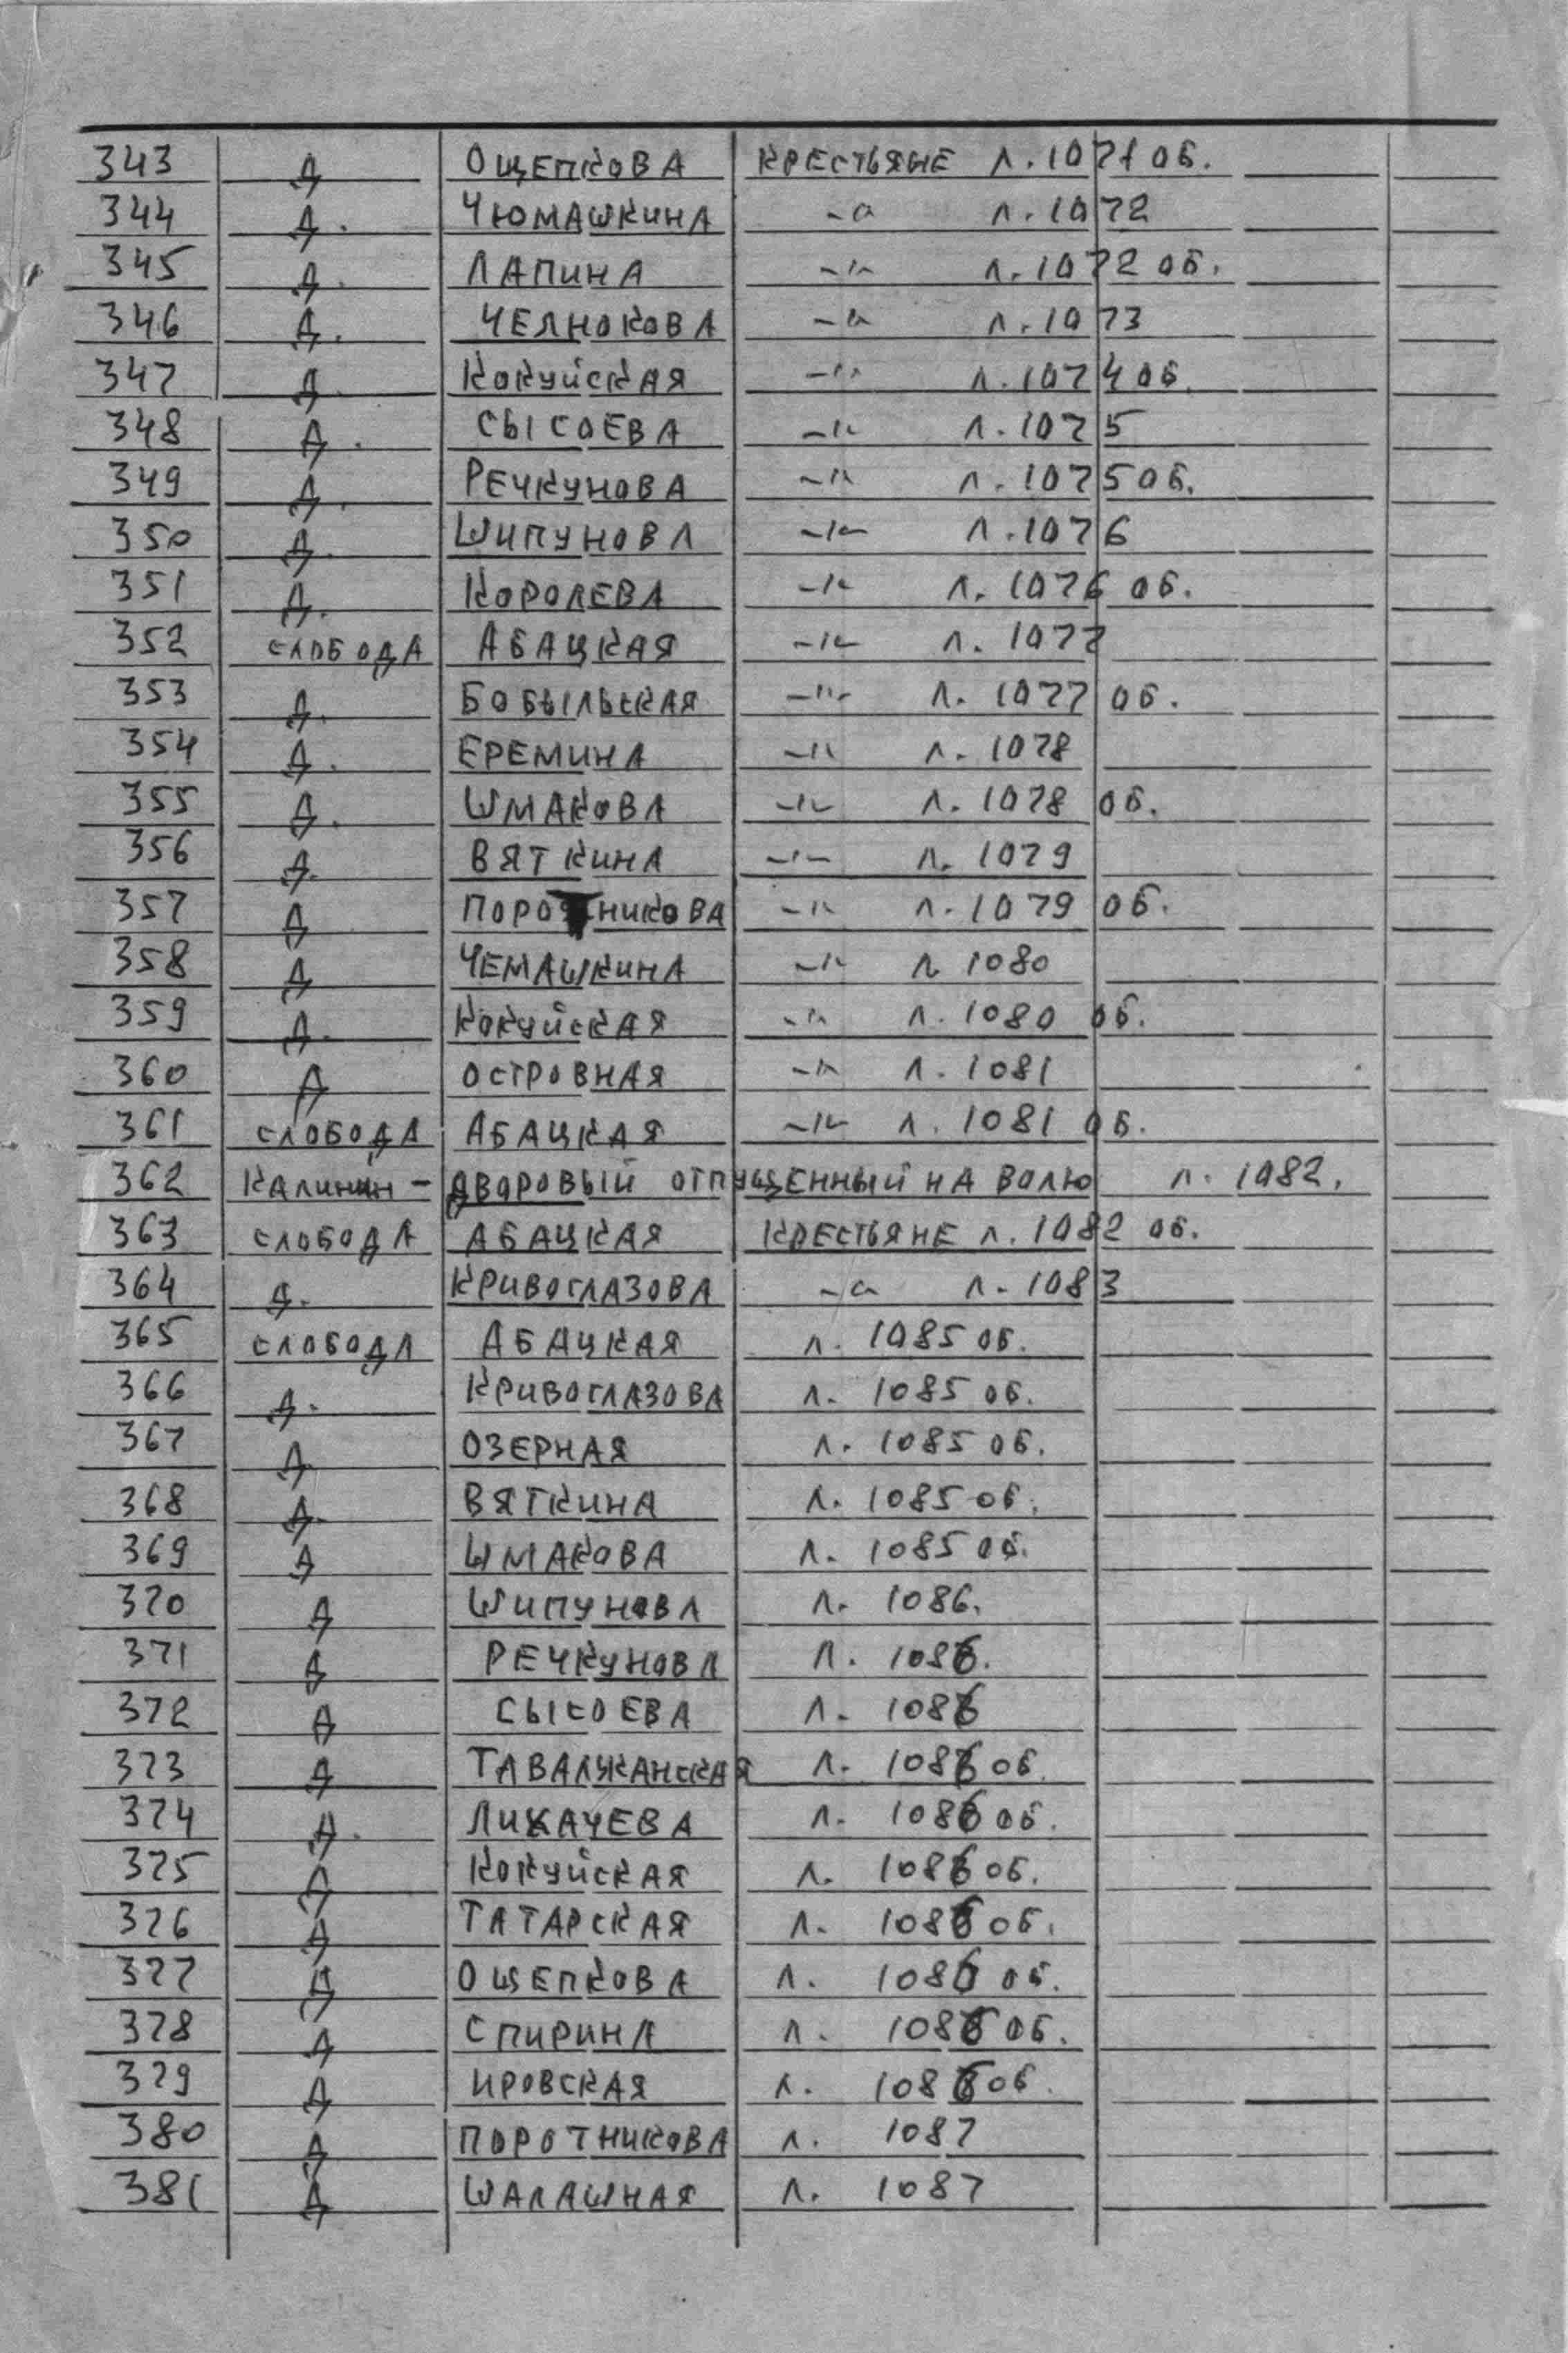 343 Д ОЩЕПКОВА КРЕСТЬЯНЕ Л. 1071 ОБ.
344 Д. ЧЮМАШКИНА -"- Л. 1072
345 Д. ЛАПИНА -"- Л. 1072 ОБ.
346 Д. ЧЕЛНОКОВА -"- Л. 1073
347 Д. КОКУЙСКАЯ -"- Л. 1074 ОБ.
348 Д. СЫСОЕВА -"- Л. 1075
349 Д. РЕЧКУНОВА -"- Л. 1075 ОБ.
350 Д. ШИПУНОВА -"- Л. 1076
351 Д. КОРОЛЕВА -"- Л. 1076 ОБ.
352 СЛОБОДА АБАЦКАЯ -"- Л. 1077
353 Д. БОБЫЛЬСКАЯ -"- Л. 1077 ОБ.
354 Д. ЕРЕМИНА -"- Л. 1078
355 Д. ШМАКОВА -"- Л. 1078 ОБ.
356 Д. ВЯТКИНА -"- Л. 1079
357 Д ПОРОТНИКОВА -"- Л. 1079 ОБ.
358 Д ЧЕМАШКИНА -"- Л 1080
359 Д. КОКУЙСКАЯ -"- Л. 1080 ОБ.
360 Д ОСТРОВНАЯ -"- Л. 1081
361 СЛОБОДА АБАЦКАЯ -"- Л. 1081 ОБ.
362 КАЛИНИН - ДВОРОВЫЙ ОТПУЩЕННЫЙ НА ВОЛЮ Л. 1082.
363 СЛОБОДА АБАЦКАЯ КРЕСТЬЯНЕ Л. 1082 ОБ.
364 Д. КРИВОГЛАЗОВА -"- Л. 1083
365 СЛОБОДА АБАЦКАЯ Л. 1085 ОБ.
366 Д. КРИВОГЛАЗОВА Л. 1085 ОБ.
367 Д ОЗЕРНАЯ Л. 1085 ОБ.
368 Д. ВЯТКИНА Л. 1085 ОБ.
369 Д ШМАКОВА Л. 1085 ОБ.
370 Д ШИПУНОВА Л. 1086.
371 Д РЕЧКУНОВА Л. 1086.
372 Д СЫСОЕВА Л. 1086
373 Д ТАВАЛЖАНСКАЯ Л. 1086 ОБ.
374 Д. ЛИХАЧЕВА Л. 1086 ОБ.
375 Д КОКУЙСКАЯ Л. 1086 ОБ.
376 Д ТАТАРСКАЯ Л. 1086 ОБ.
377 Д ОЩЕПКОВА Л. 1086 ОБ.
378 Д СПИРИНА Л. 1086 ОБ.
379 Д ИРОВСКАЯ Л. 1086 ОБ.
380 Д ПОРОТНИКОВА Л. 1087
381 Д ШАЛАШНАЯ Л. 1087